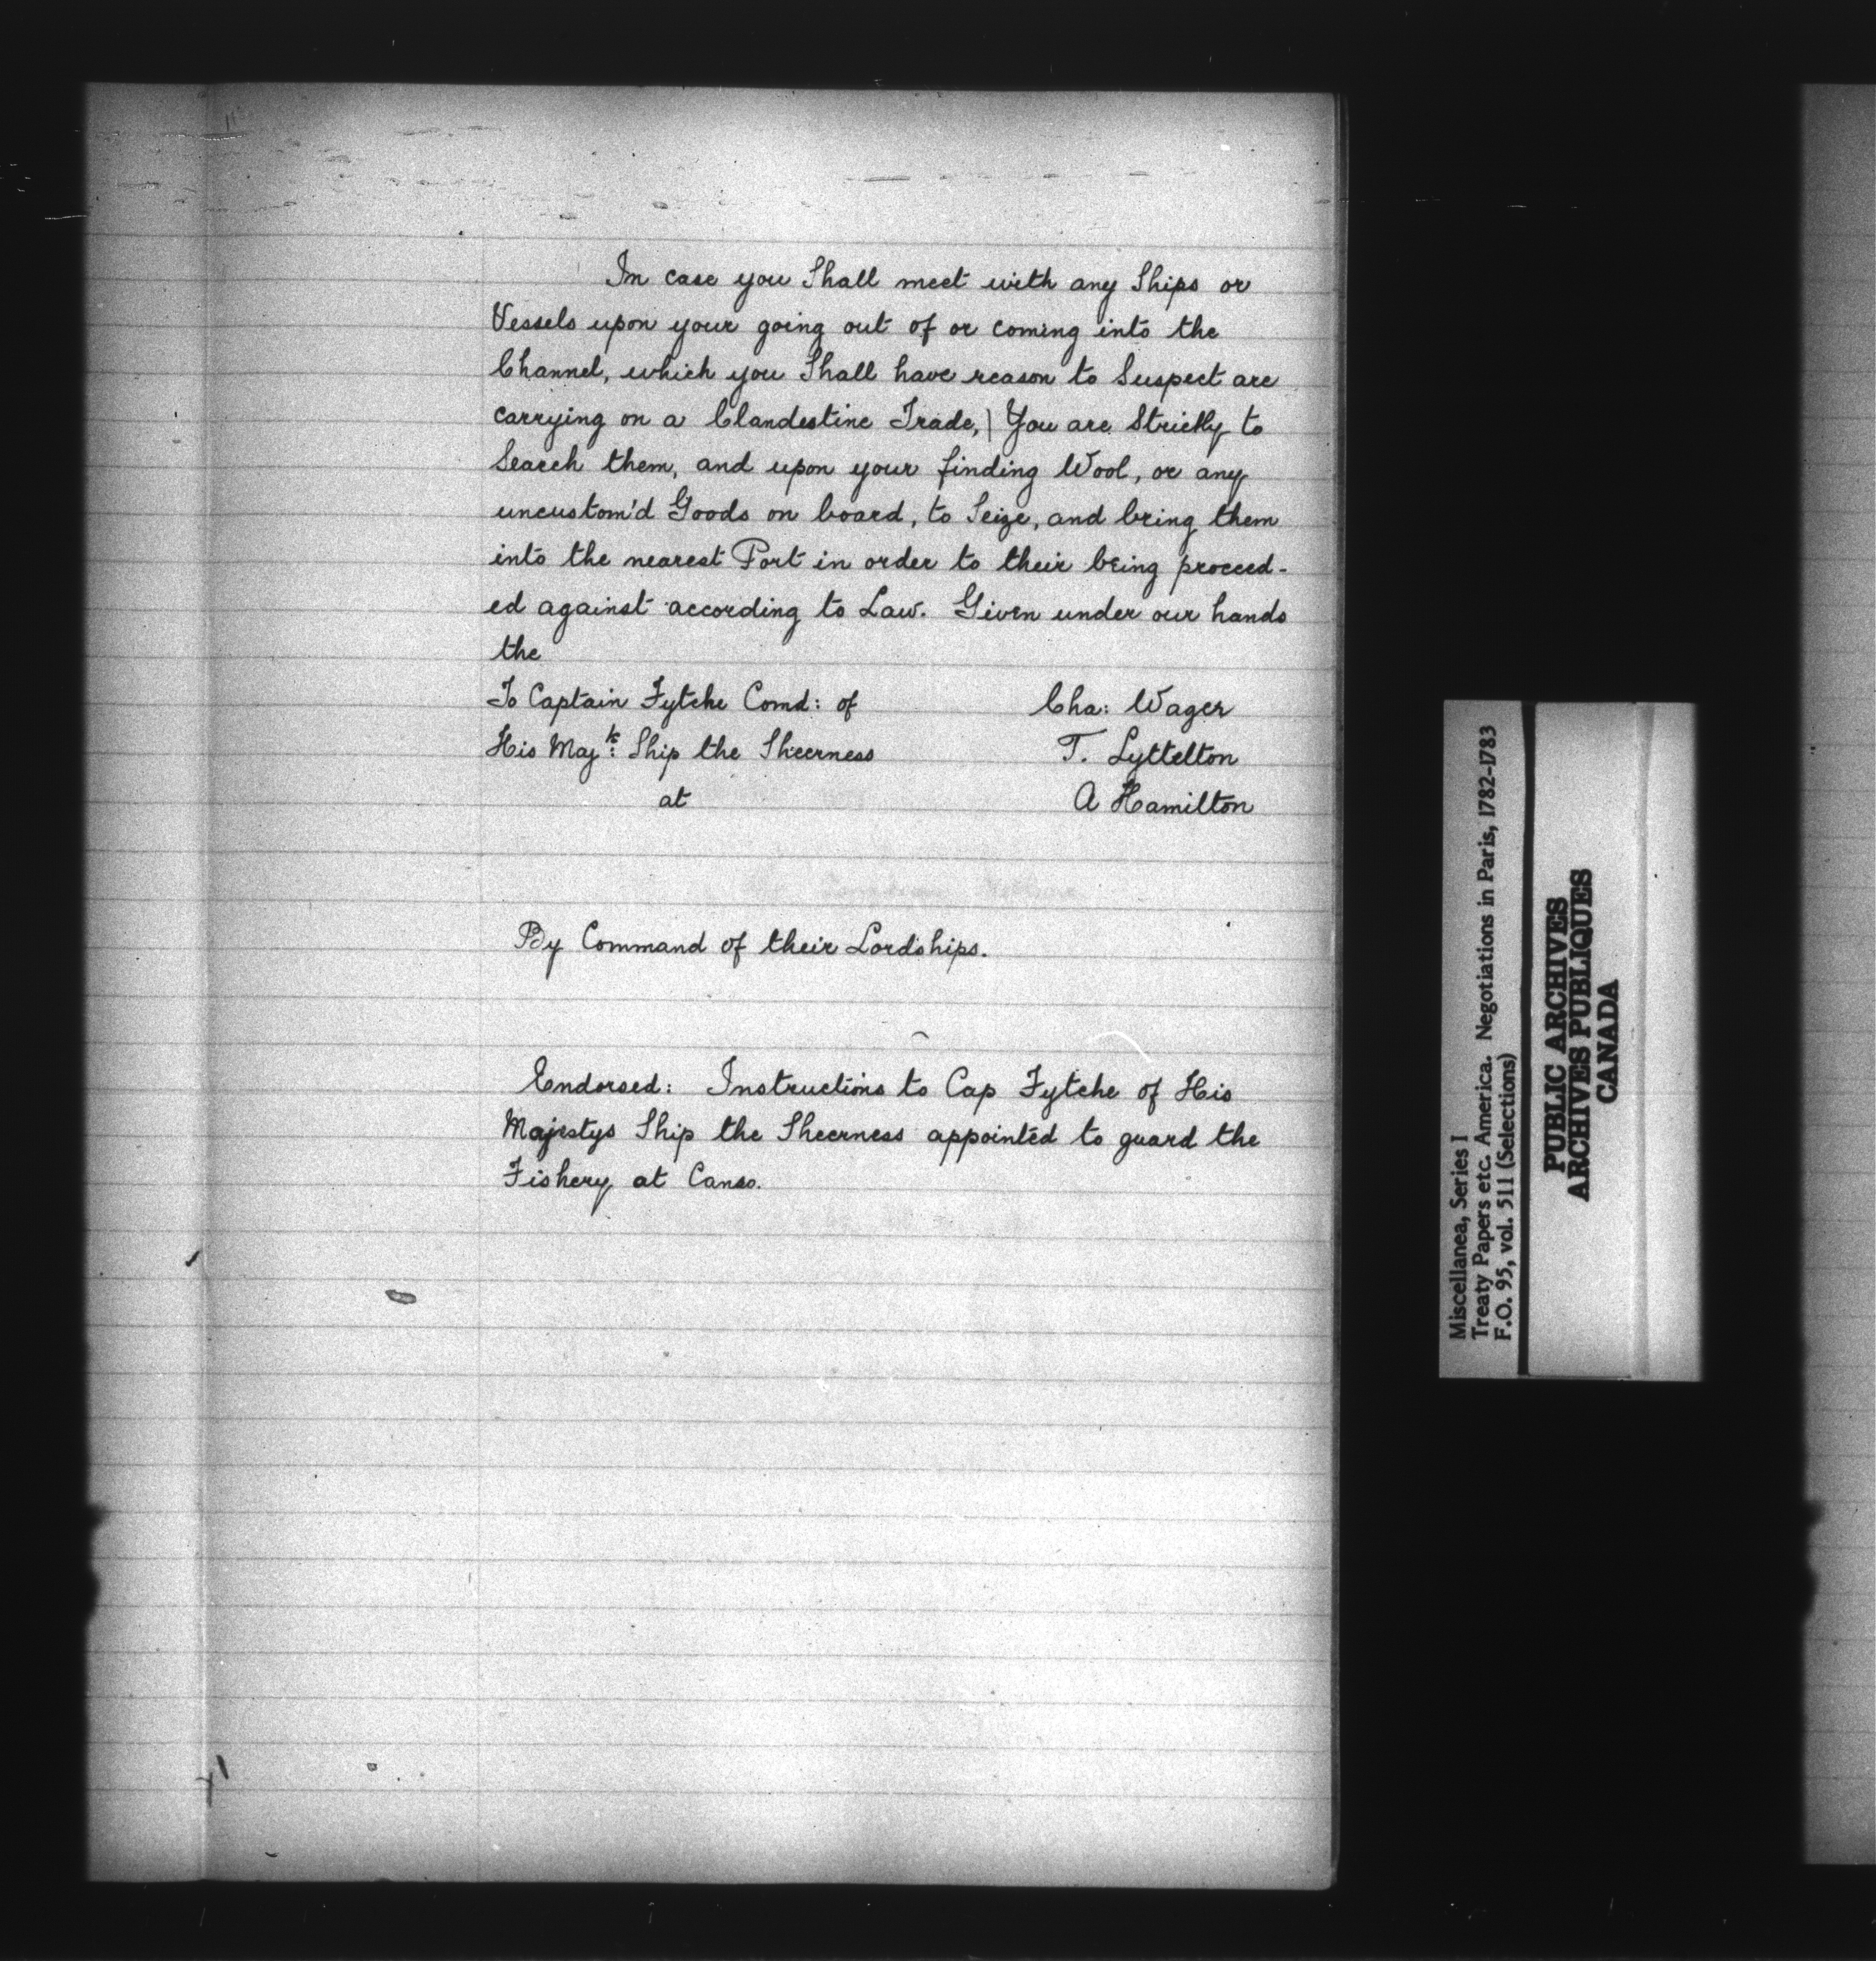 In case you Shall meet with any Ships or
Vessels upon your going out of or coming into the
Channel, which you Shall have reason to Suspect are
carrying on a Clandestine Trade,) You are Strictly to
Search them, and upon your finding Wool, or any
uncustom'd Goods on board, to Seize, and bring them
into the nearest Port in order to their being proceed-
ed against according to Law. Given under our hands
the
To Captain Fytche Comd: of
His Maj^ts: Ship the Sheerness
at
Cha: Wager
T. Lyttelton
A Hamilton
By Command of their Lordships.
Endorsed: Instructions to Cap Fytche of His
Majestys Ship the Sheerness appointed to guard the
Fishery at Canso.
Miscellanea, Series I
Treaty Papers etc. America. Negotiations in Paris, 1782-1783
F.O. 95, vol. 511 (Selections)
PUBLIC ARCHIVES
ARCHIVES PUBLIQUES
CANADA